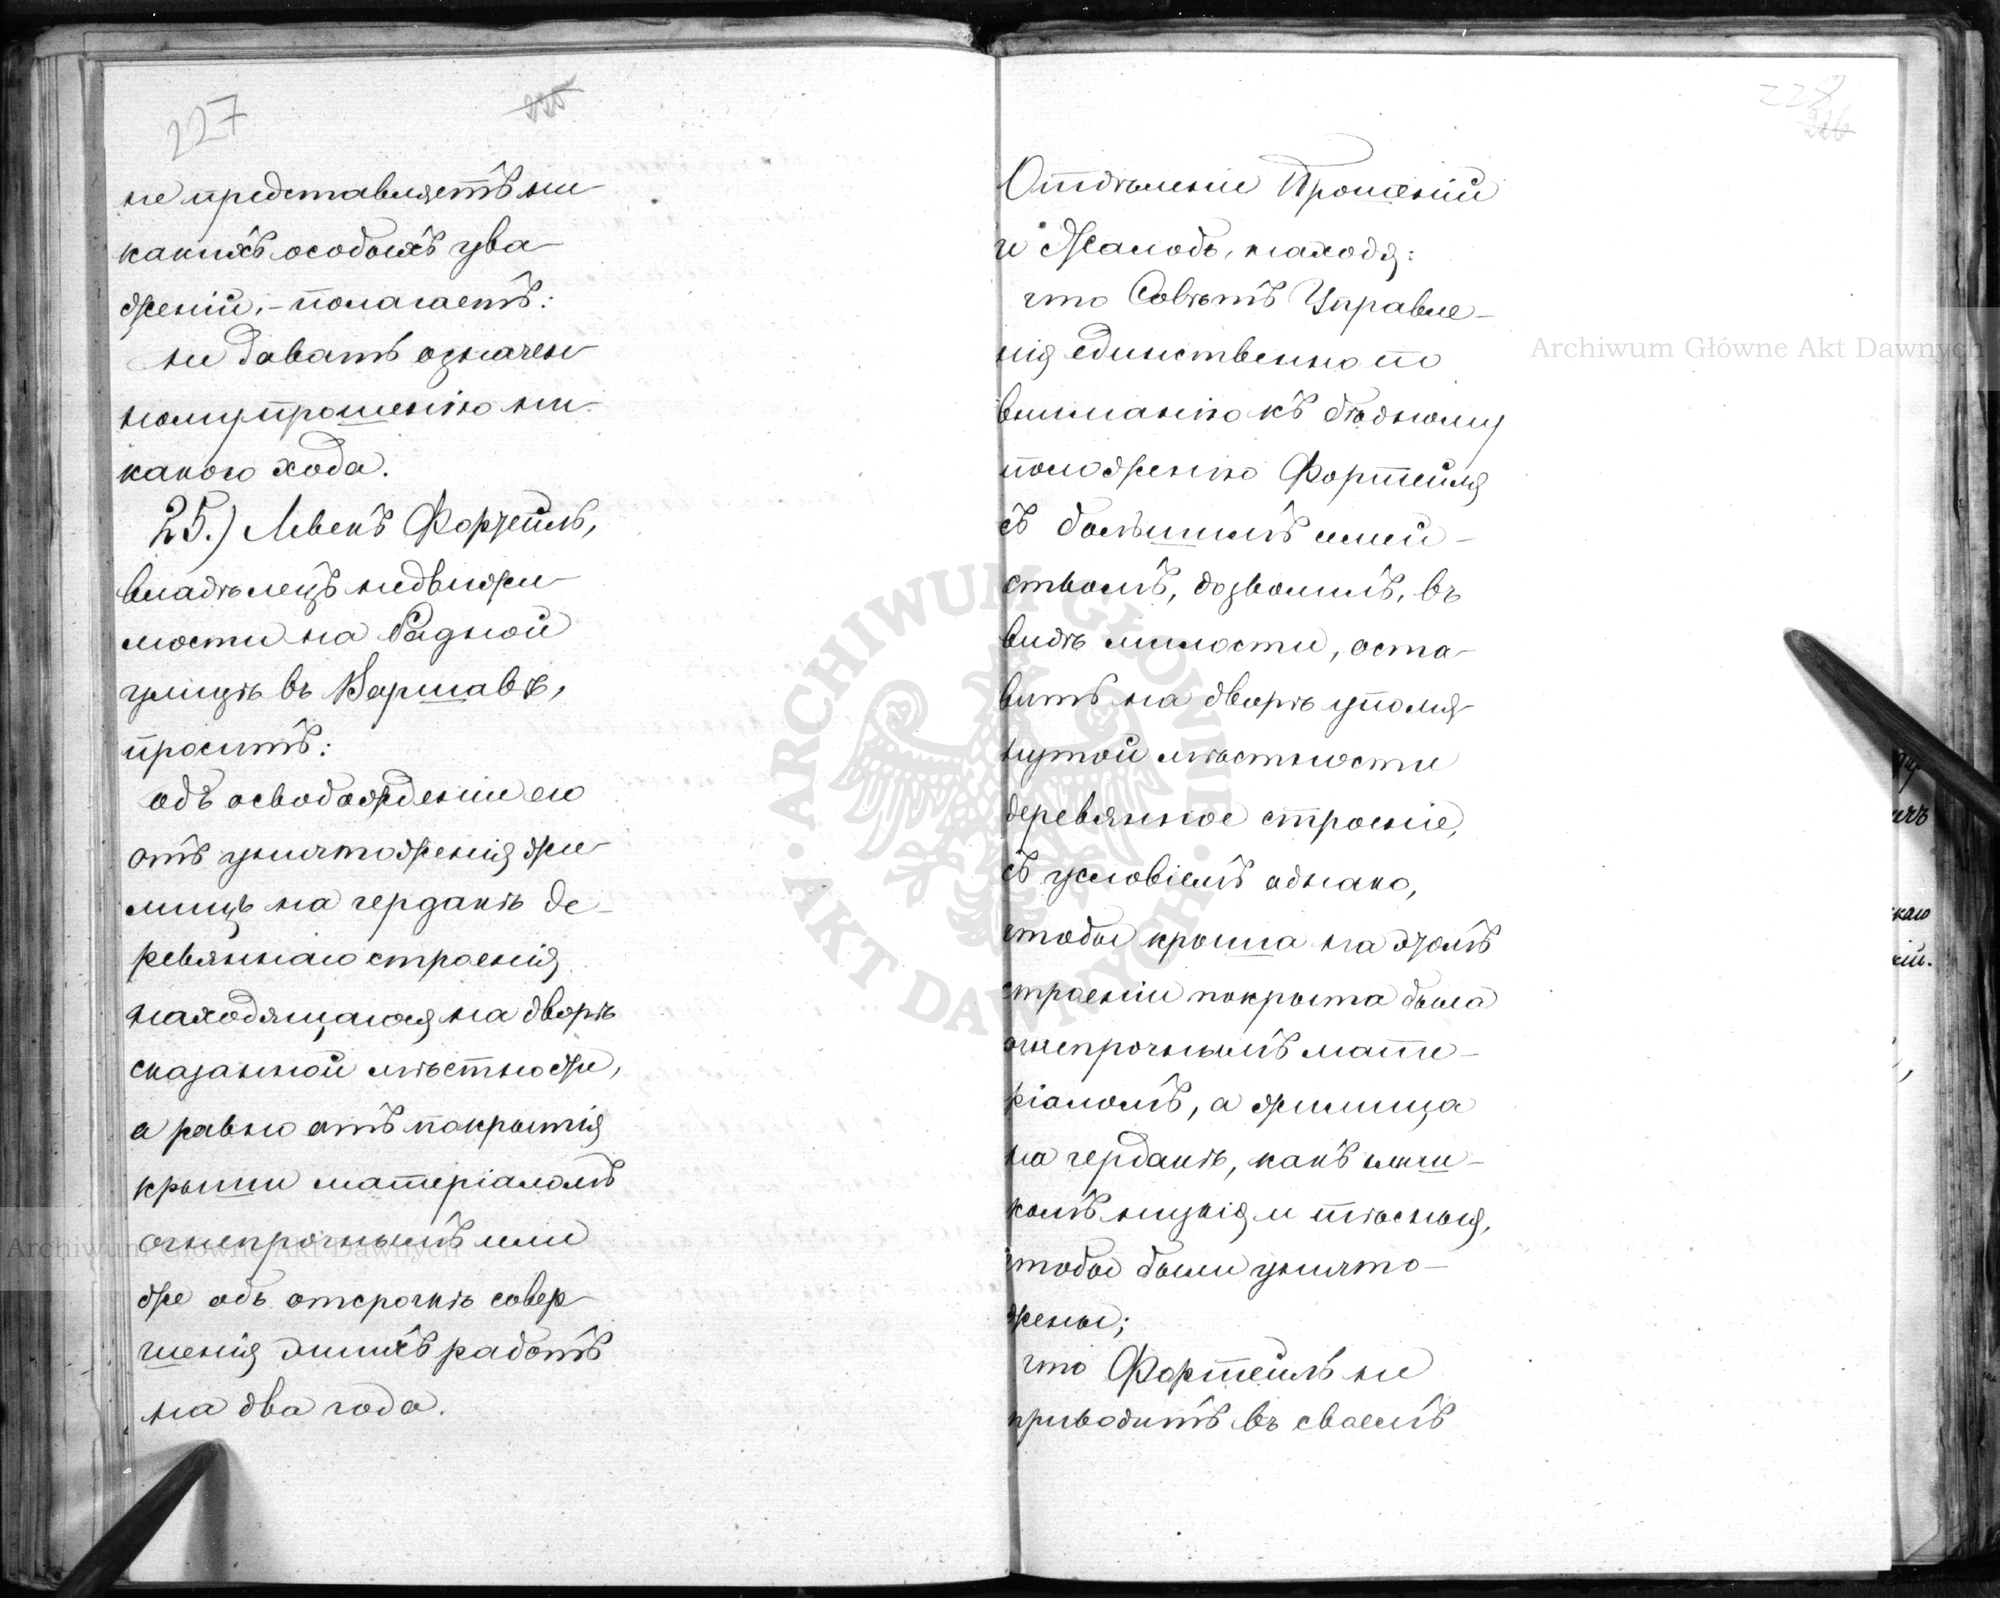 227
225
не представляетъ ни
какихъ особыхъ ува
женій, – полагаетъ:
не давать означен
ному прошенію ни-
какого хода.
25.) Левекъ Фортейль,
владѣлецъ недвижи
мости на Радной
улицѣ въ Варшавѣ,
проситъ:
объ освобожденіи его
отъ уничтоженія жи
лищъ на чердакѣ де-
ревяннаго строенія
находящагося на дворѣ
сказанной мѣстности,
а равно отъ покрытія
крыши матеріаломъ
огнепрочнымъ или
же объ отсрочкѣ совер
шенія этихъ работъ
на два года.
228
226
Отдѣленіе Прошеній
и Жалобъ, находя:
что Совѣтъ Управле-
нія единственно по
вниманію къ бѣдному
положенію Фортейля
съ большимъ семей-
ствомъ, дозволилъ, въ
видѣ милости, оста-
вить на дворѣ упомя-
нутой мѣстности
деревянное строеніе,
съ условіемъ однако,
чтобы крыша на этомъ
строеніи покрыта была
огнепрочнымъ мате-
ріаломъ, а жилища
на чердакѣ, какъ слиш-
комъ низкія и тѣсныя,
чтобы были уничто-
жены;
что Фортейль не
приводитъ въ своемъ
Archiwum Główne Akt Dawnych
Archiwum Główne Akt Dawnych
ARCHIWUM GŁÓWNE · AKT DAWNYCH ·